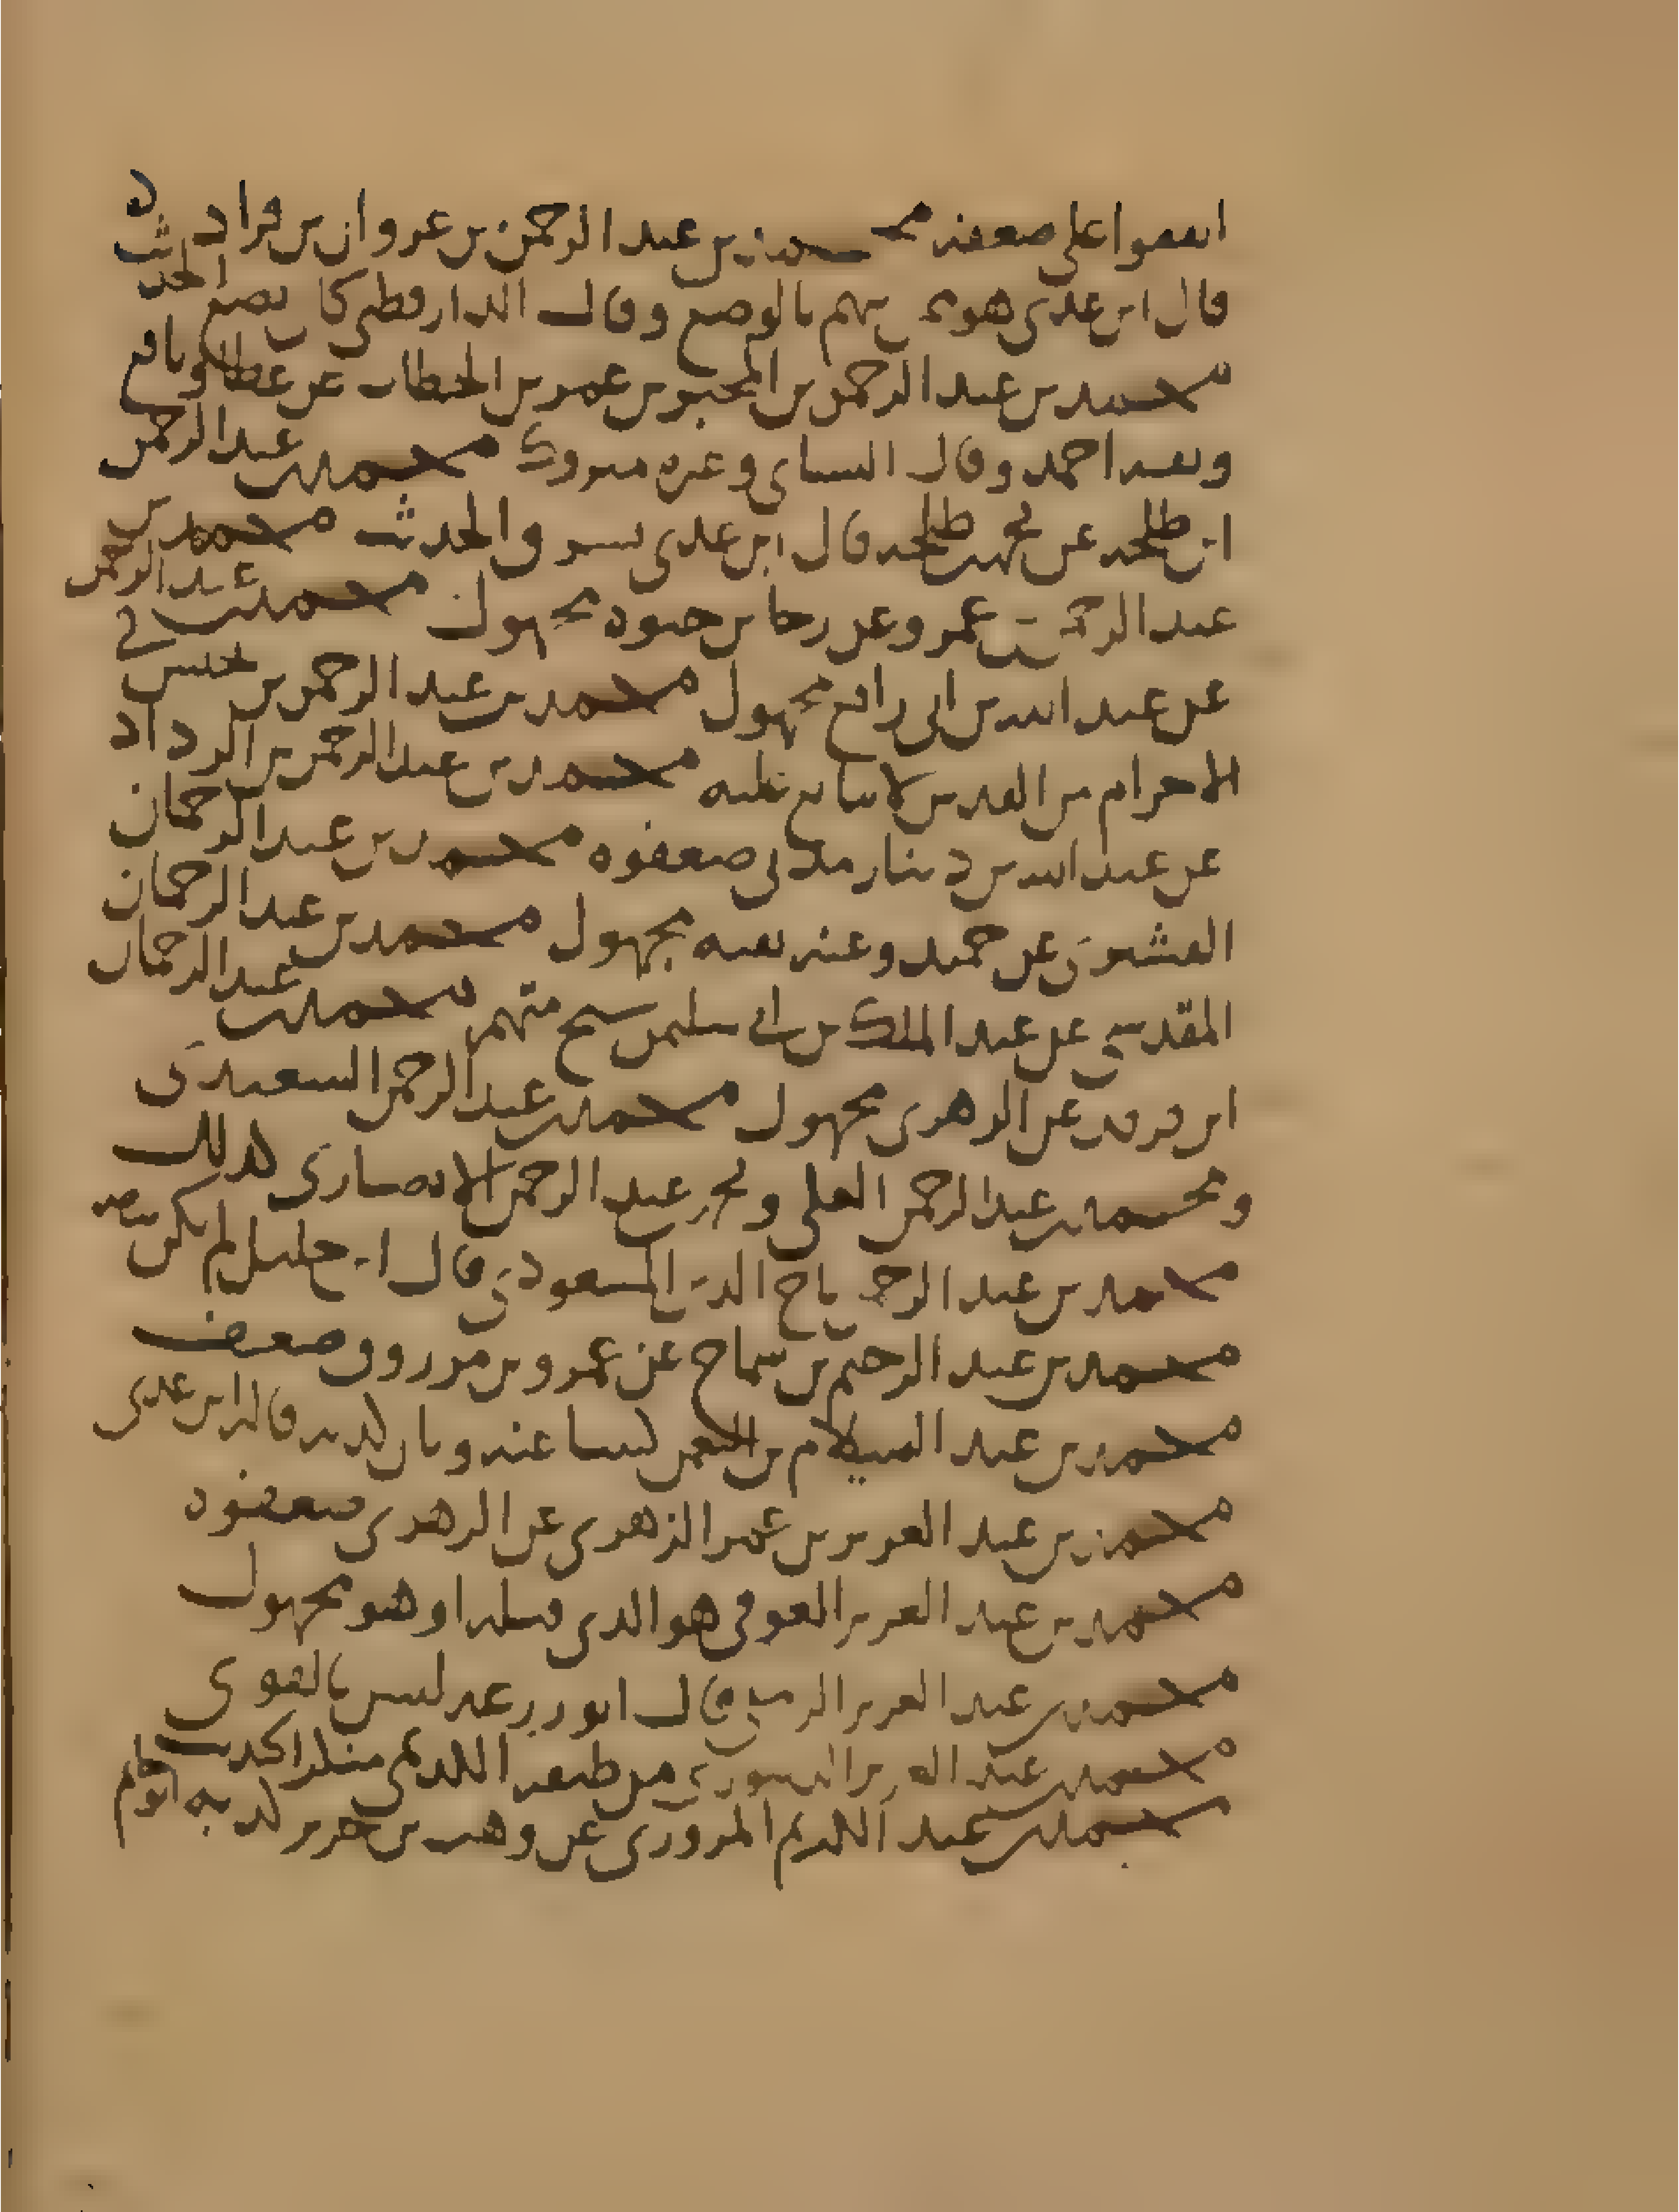 اتفقوا على ضعفه محمد بن عبد الرحمن بن غزوان بن قراد
قال ابن عدي هو ممن يتهم بالوضع وقال الدارقطني كان يضع الحديث
محمد بن عبد الرحمن بن المجبر بن عمر بن الخطاب عن عطا ونافع
وثقه احمد وقال النساي وغيره متروك محمد بن عبد الرحمن
ابن طلحة عن طلحة قال ابن عدي يسرق الحديث محمد بن
عبد الرحمن بن عمرو عن رجا بن حيوه مجهول محمد بن عبد الرحمن
عن عبد الله بن ابي رافع مجهول محمد بن عبد الرحمن بن يحنس في
الاحرام من القدس لا يتابع عليه محمد بن عبد الرحمن بن الرداد
عن عبد الله بن دينار مدني ضعفوه محمد بن عبد الرحمان
القشيري عن حميد وعنه بقيه مجهول محمد بن عبد الرحمان
المقدسي عن عبد الملك بن ابي سليمن شيخ متهم محمد بن عبد الرحمان
ابن فرقد عن الزهري مجهول محمد بن عبد الرحمن السعيدي
ومحمد بن عبد الرحمن ومحمد بن عبد الرحمن الانصاري كذلك
محمد بن عبد الرحمن تاج الدين المسعودي قال ابن خليل لم يكن
محمد بن عبد الرحيم بن شماخ عن عمرو بن مرزوق ضعيف
محمد بن عبد السلام بن النعمن كتبنا عنه وبان كذبه قاله ابن عدي
محمد بن عبد العزيز بن عمر الزهري عن الزهري ضعفوه
محمد بن عبد العزيز العوفي هو الذي قبله او هو مجهول
محمد بن عبد العزيز الرملي قال ابو زرعه ليس بالقوي
محمد بن عبد العزيز الدينوري من طبقه الكديمي
محمد بن عبد الكريم المروزي عن وهب بن جرير كذبه ابو حاتم